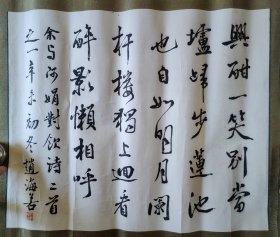 興酣一笑別當
壚婦步蓮池
也自如明月闌
杆樓獨上迴看
醉影懶相呼
余与河娟對飲詩二首
之一辛未初冬趙海